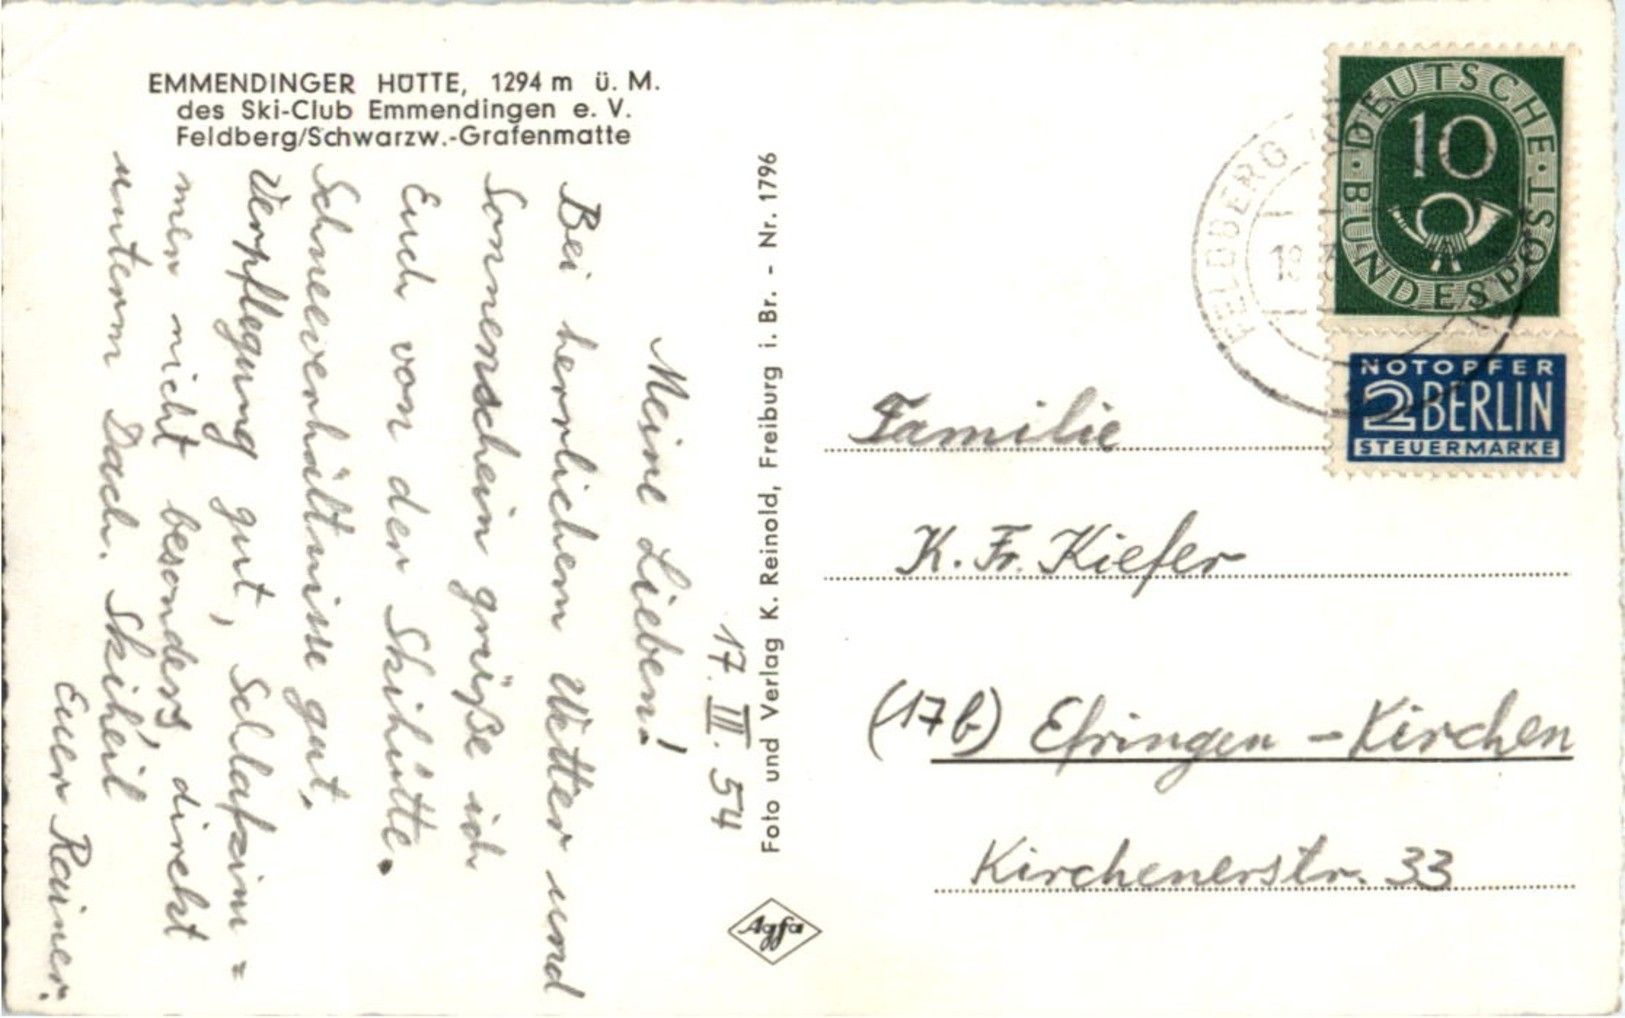 EMMENDINGER HÜTTE, 1294 m ü. M.
des Ski-Club Emmendingen e. V.
Feldberg/Schwarzw.-Grafenmatte
17. III. 54
Meine Lieben!
Bei herrlichem Wetter und
Sonnenschein grüße ich
Euch von der Skihütte.
Schneeverhältnisse gut,
Verpflegung gut, Schlafzim=
mer nicht besonders, direkt
unterm Dach. Skiheil
Euer Rainer.
Foto und Verlag K. Reinold, Freiburg i. Br. - Nr. 1796
Agfa
FELDBERG
18
DEUTSCHE
BUNDESPOST
10
NOTOPFER
2 BERLIN
STEUERMARKE
Familie
K. Fr. Kiefer
(17b) Efringen-Kirchen
Kirchenerstr. 33